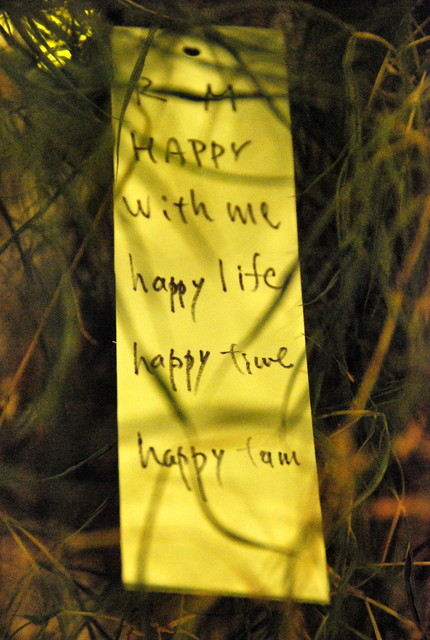 R M
HAPPY
with me
happy life
happy time
happy fam